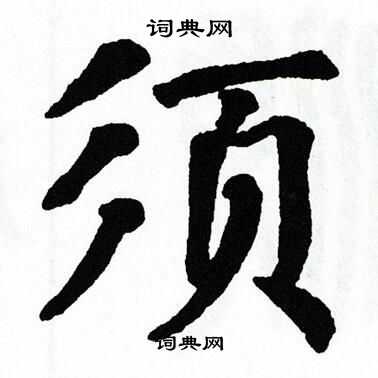 词典网
须
词典网